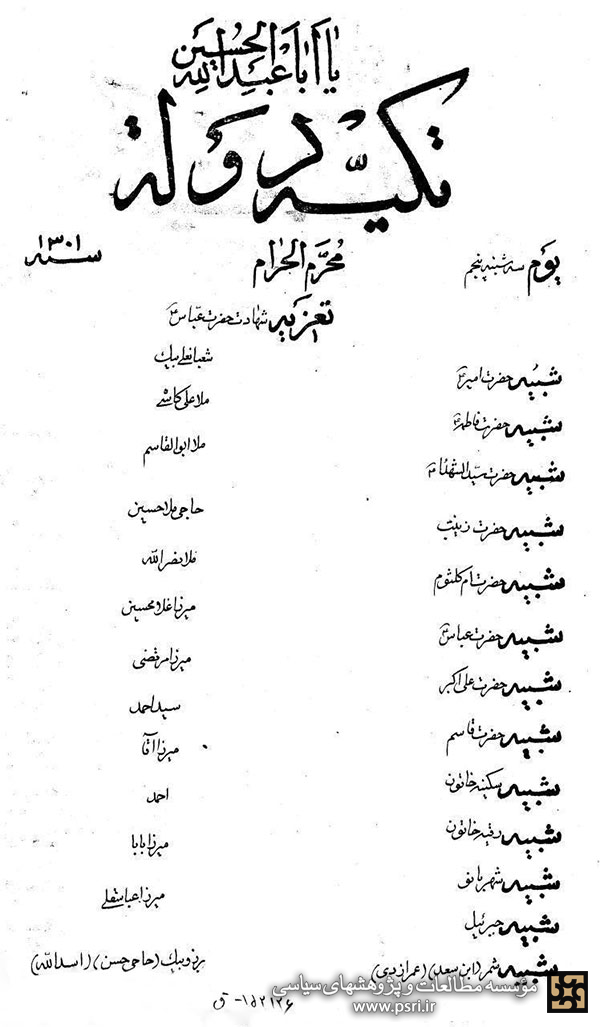 یا أبا عبدالله الحسین
تکیه دولة
یوم سه شنبه پنجم محرم الحرام سنه ۱۳۰۱
تعزیه شهادت حضرت عباس ع
شبیه حضرت امیر ع شعبانعلی بیک
شبیه حضرت فاطمه ع ملا علی کاشی
شبیه حضرت سید الشهداء ع ملا ابوالقاسم
شبیه حضرت زینب حاجی ملا حسین
شبیه حضرت ام کلثوم ملا نصرالله
شبیه حضرت عباس ع میرزا غلامحسین
شبیه حضرت علی اکبر میرزا مرتضی
شبیه حضرت قاسم سید احمد
شبیه سکینه خاتون میرزا آقا
شبیه رقیه خاتون احمد
شبیه شهربانو میرزا بابا
شبیه جبرئیل میرزا عباسقلی
شبیه شمر (ابن سعد) (عمر ازدی) برزو بیک (حاجی حسن) (اسدالله)
موسسه مطالعات و پژوهشهای سیاسی
www.psri.ir
۱۵۲۱۲۶-ق